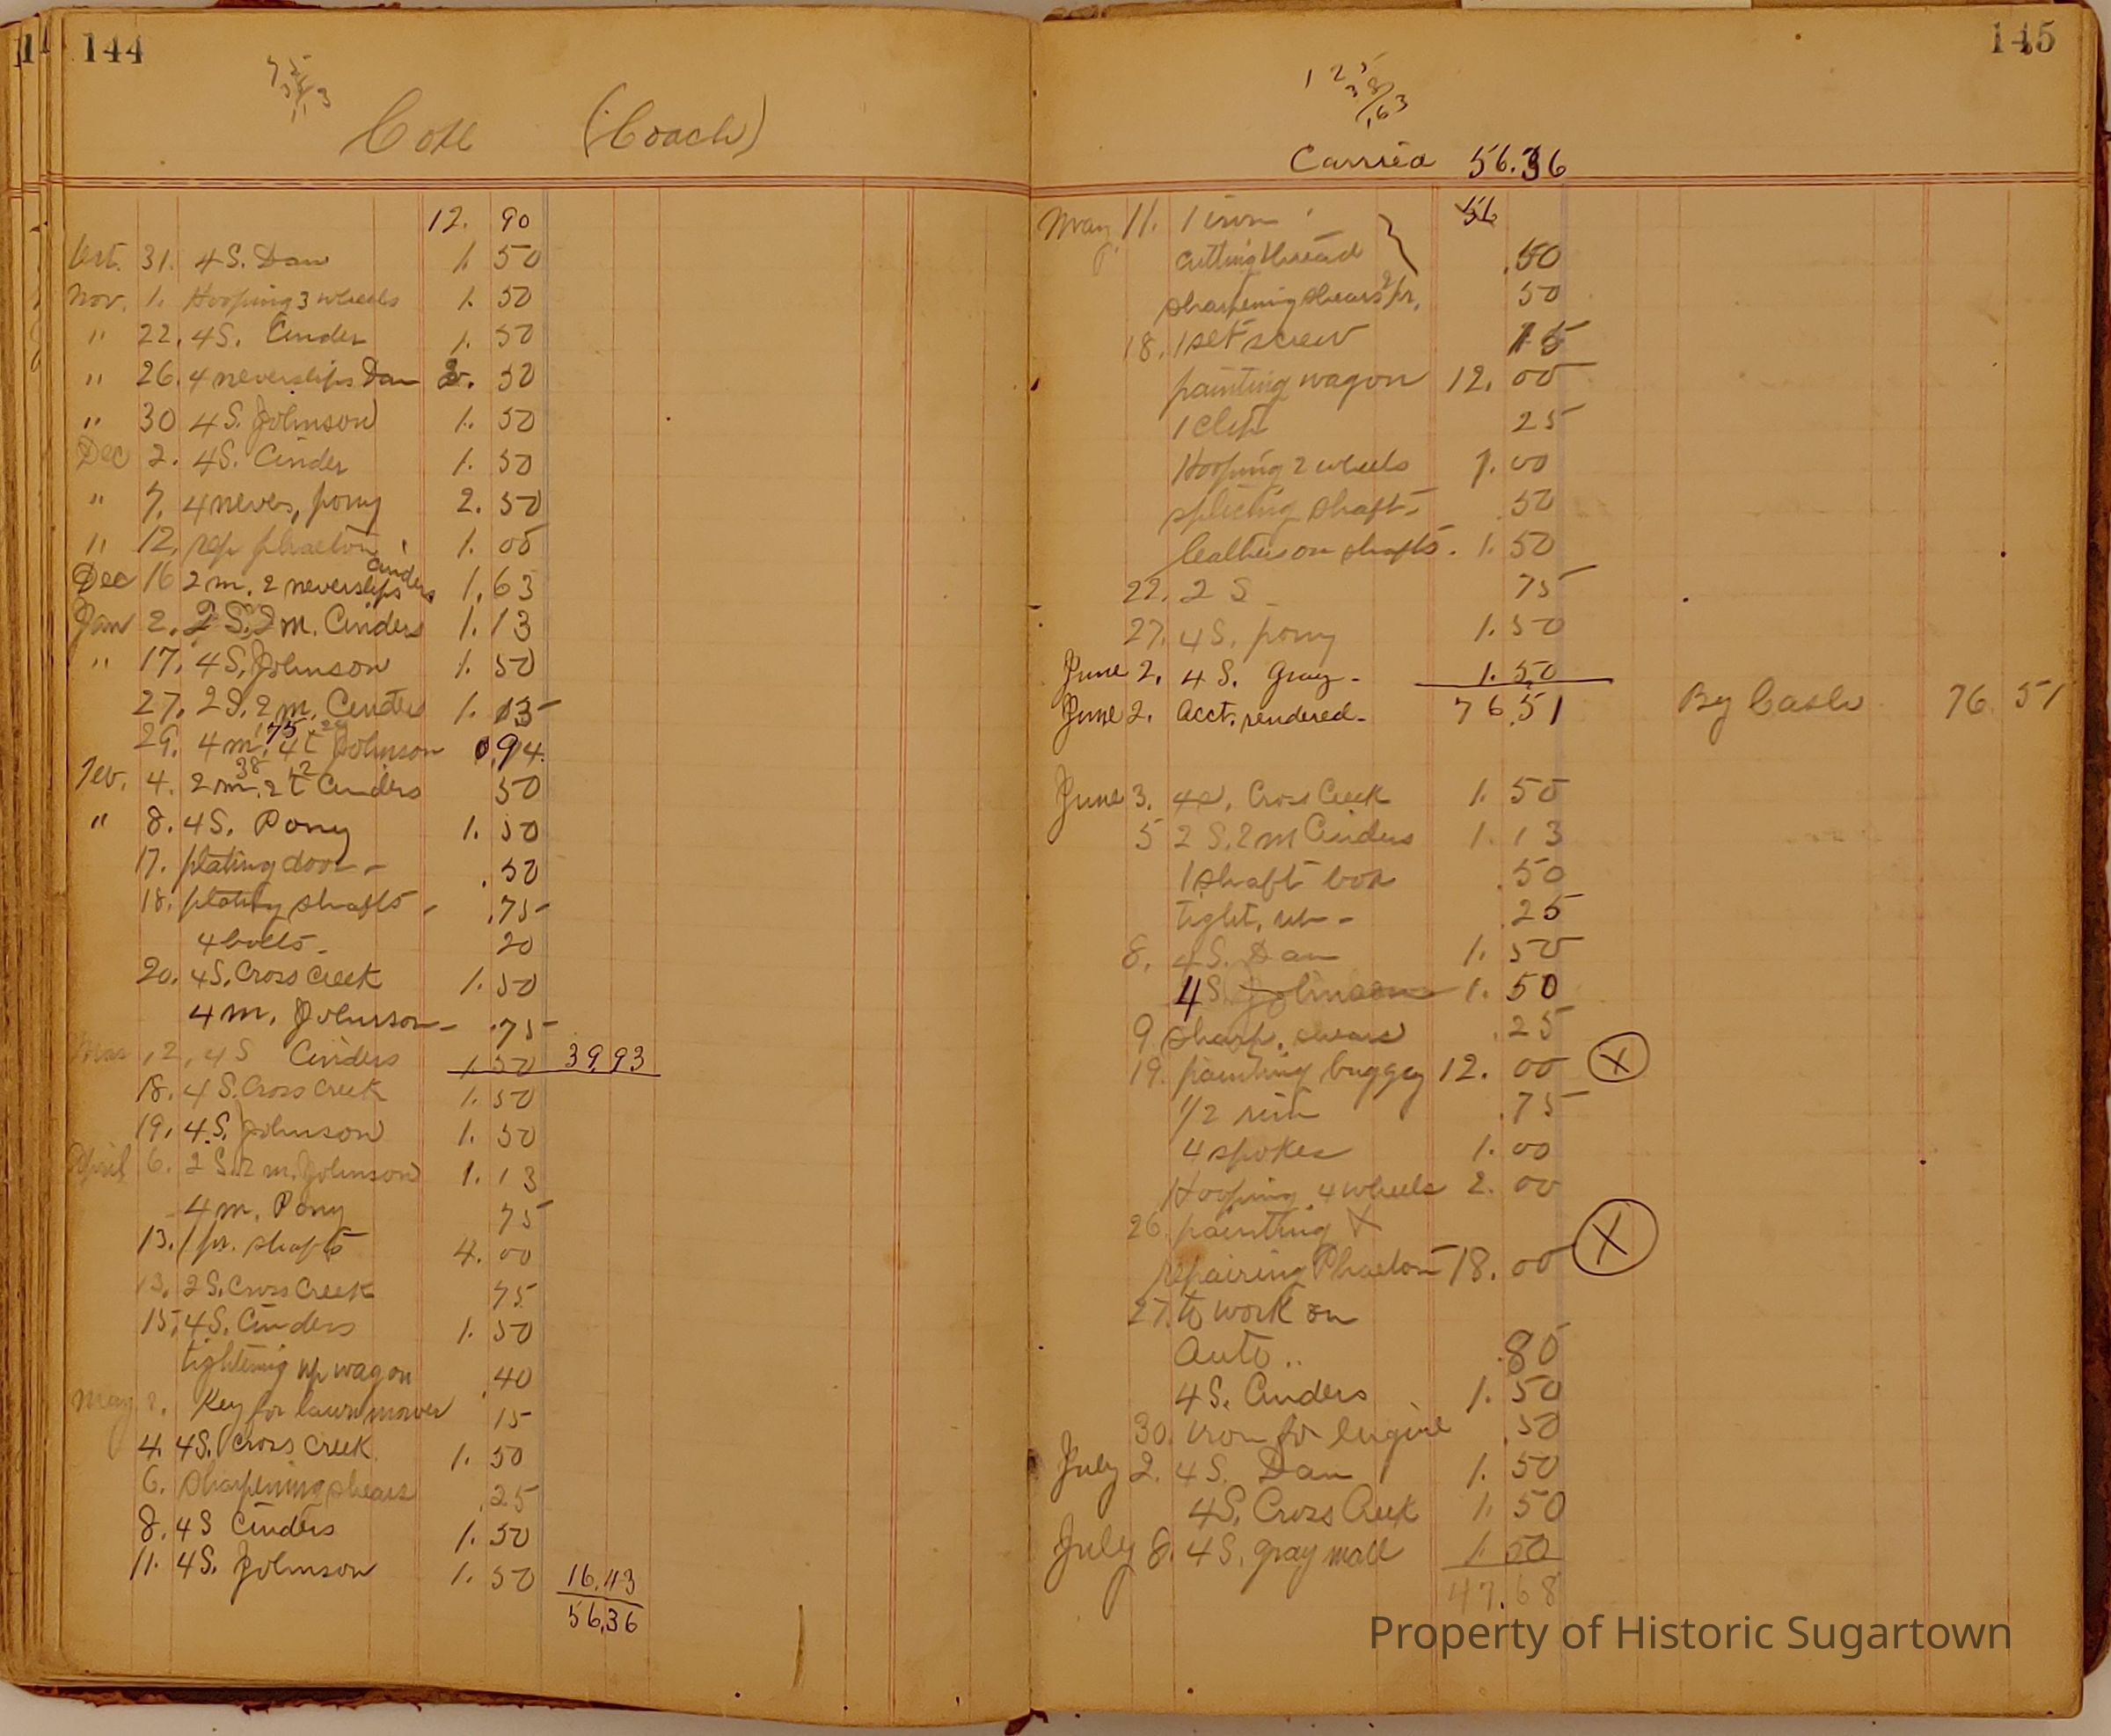 144
75
38
1.13
Cox (Coach)
12. 90
Oct. 31. 4 S. Dan 1. 50
Nov. 1. Hooping 3 wheels 1. 50
" 22. 4 S. Cinder 1. 50
" 26. 4 neverslips Dan 2. 50
" 30 4 S. Johnson 1. 50
Dec 2. 4 S. Cinder 1. 50
" 7. 4 nevers, pony 2. 50
" 12, rep phaeton 1. 00
Dec 16 2 m. 2 neverslips Cinders 1.63
Jan 2. 2 S. 2 m. Cinders 1.13
" 17. 4 S. Johnson 1. 50
27. 2 S. 2 m. Cinders 1. 13
29. 4 m. 75 4 t Johnson 0.94
Feb. 4. 2 m. 38 2 t 12 Cinders 50
" 8. 4 S. Pony 1. 50
17. plating door - . 50
18. plating shafts - .75
4 bolts - 20
20. 4 S. Cross Creek 1. 50
4 m. Johnson - .75
Mar 12, 4 S Cinders 1.50 39.93
18. 4 S. Cross Creek 1. 50
19. 4. S. Johnson 1. 50
April 6. 2 S. 2 m. Johnson 1. 13
4 m. Pony 75
13. 1 pr. shafts 4. 00
13. 2 S. Cross Creek 75
15. 4 S. Cinders 1. 50
tightening up wagon .40
May Key for lawn mower 15
4. 4 S. Cross Creek 1. 50
6. sharpening shears .25
8. 4 S Cinders 1. 50
11. 4 S. Johnson 1. 50 16.43
56.36
145
1 25
38
1.63
Carried 56.36
56
May 11. 1 iron
cutting thread } .50
sharpening shears 2 pr. 50
18. 1 set screw 15
painting wagon 12. 00
1 clip 25
Hooping 2 wheels 1. 00
splicing shaft - .50
leathers on shafts. 1. 50
22. 2 S 75
27. 4 S. pony 1. 50
June 2. 4 S. Gray - 1. 50
June 2. Acct. rendered - 76.51 By Cash 76 51
June 3. 4 S. Cross Creek 1. 50
5 2 S. 2 m Cinders 1. 13
1 shaft box .50
tight. - .25
8. 4 S. Dan 1. 50
4 S. Johnson 1. 50
9 sharp. shears .25
19. painting buggy 12. 00 X
1/2 rim .75
4 spokes 1. 00
Hooping 4 wheels 2. 00
26. painting X
repairing Phaeton 18. 00 X
27. to work on
Auto .. .80
4 S. Cinders 1. 50
30. iron for Engine .50
July 2. 4 S. Dan 1. 50
4 S. Cross Creek 1. 50
July 8. 4 S. gray 1. 50
47.68
Property of Historic Sugartown